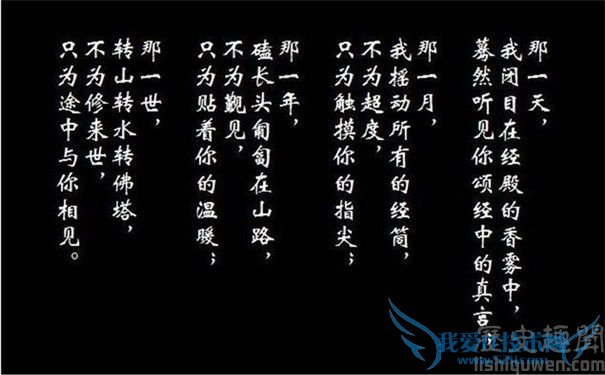 那一天，
我闭目在经殿的香雾中，
蓦然听见你颂经中的真言；
那一月，
我摇动所有的经筒，
不为超度，
只为触摸你的指尖；
那一年，
磕长头匍匐在山路，
不为觐见，
只为贴着你的温暖；
那一世，
转山转水转佛塔，
不为修来世，
只为途中与你相见。
歷史趣聞
lishiquwen.com